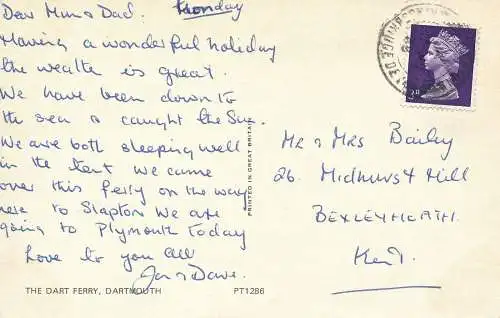 Dear Mum & Dad. Monday
Having a wonderful holiday
the weathe is great.
We have been down to
the sea & caught the Sun.
We are both sleeping well
in the tent we came
over this ferry on the way
here to Slapton We are
going to Plymouth today
Love to you all
Jan & Dave.
THE DART FERRY, DARTMOUTH
PT1286
PRINTED IN GREAT BRITAIN
Mr & Mrs Bailey
26. Midhurst Hill
BEXLEYHEATH.
Kent.